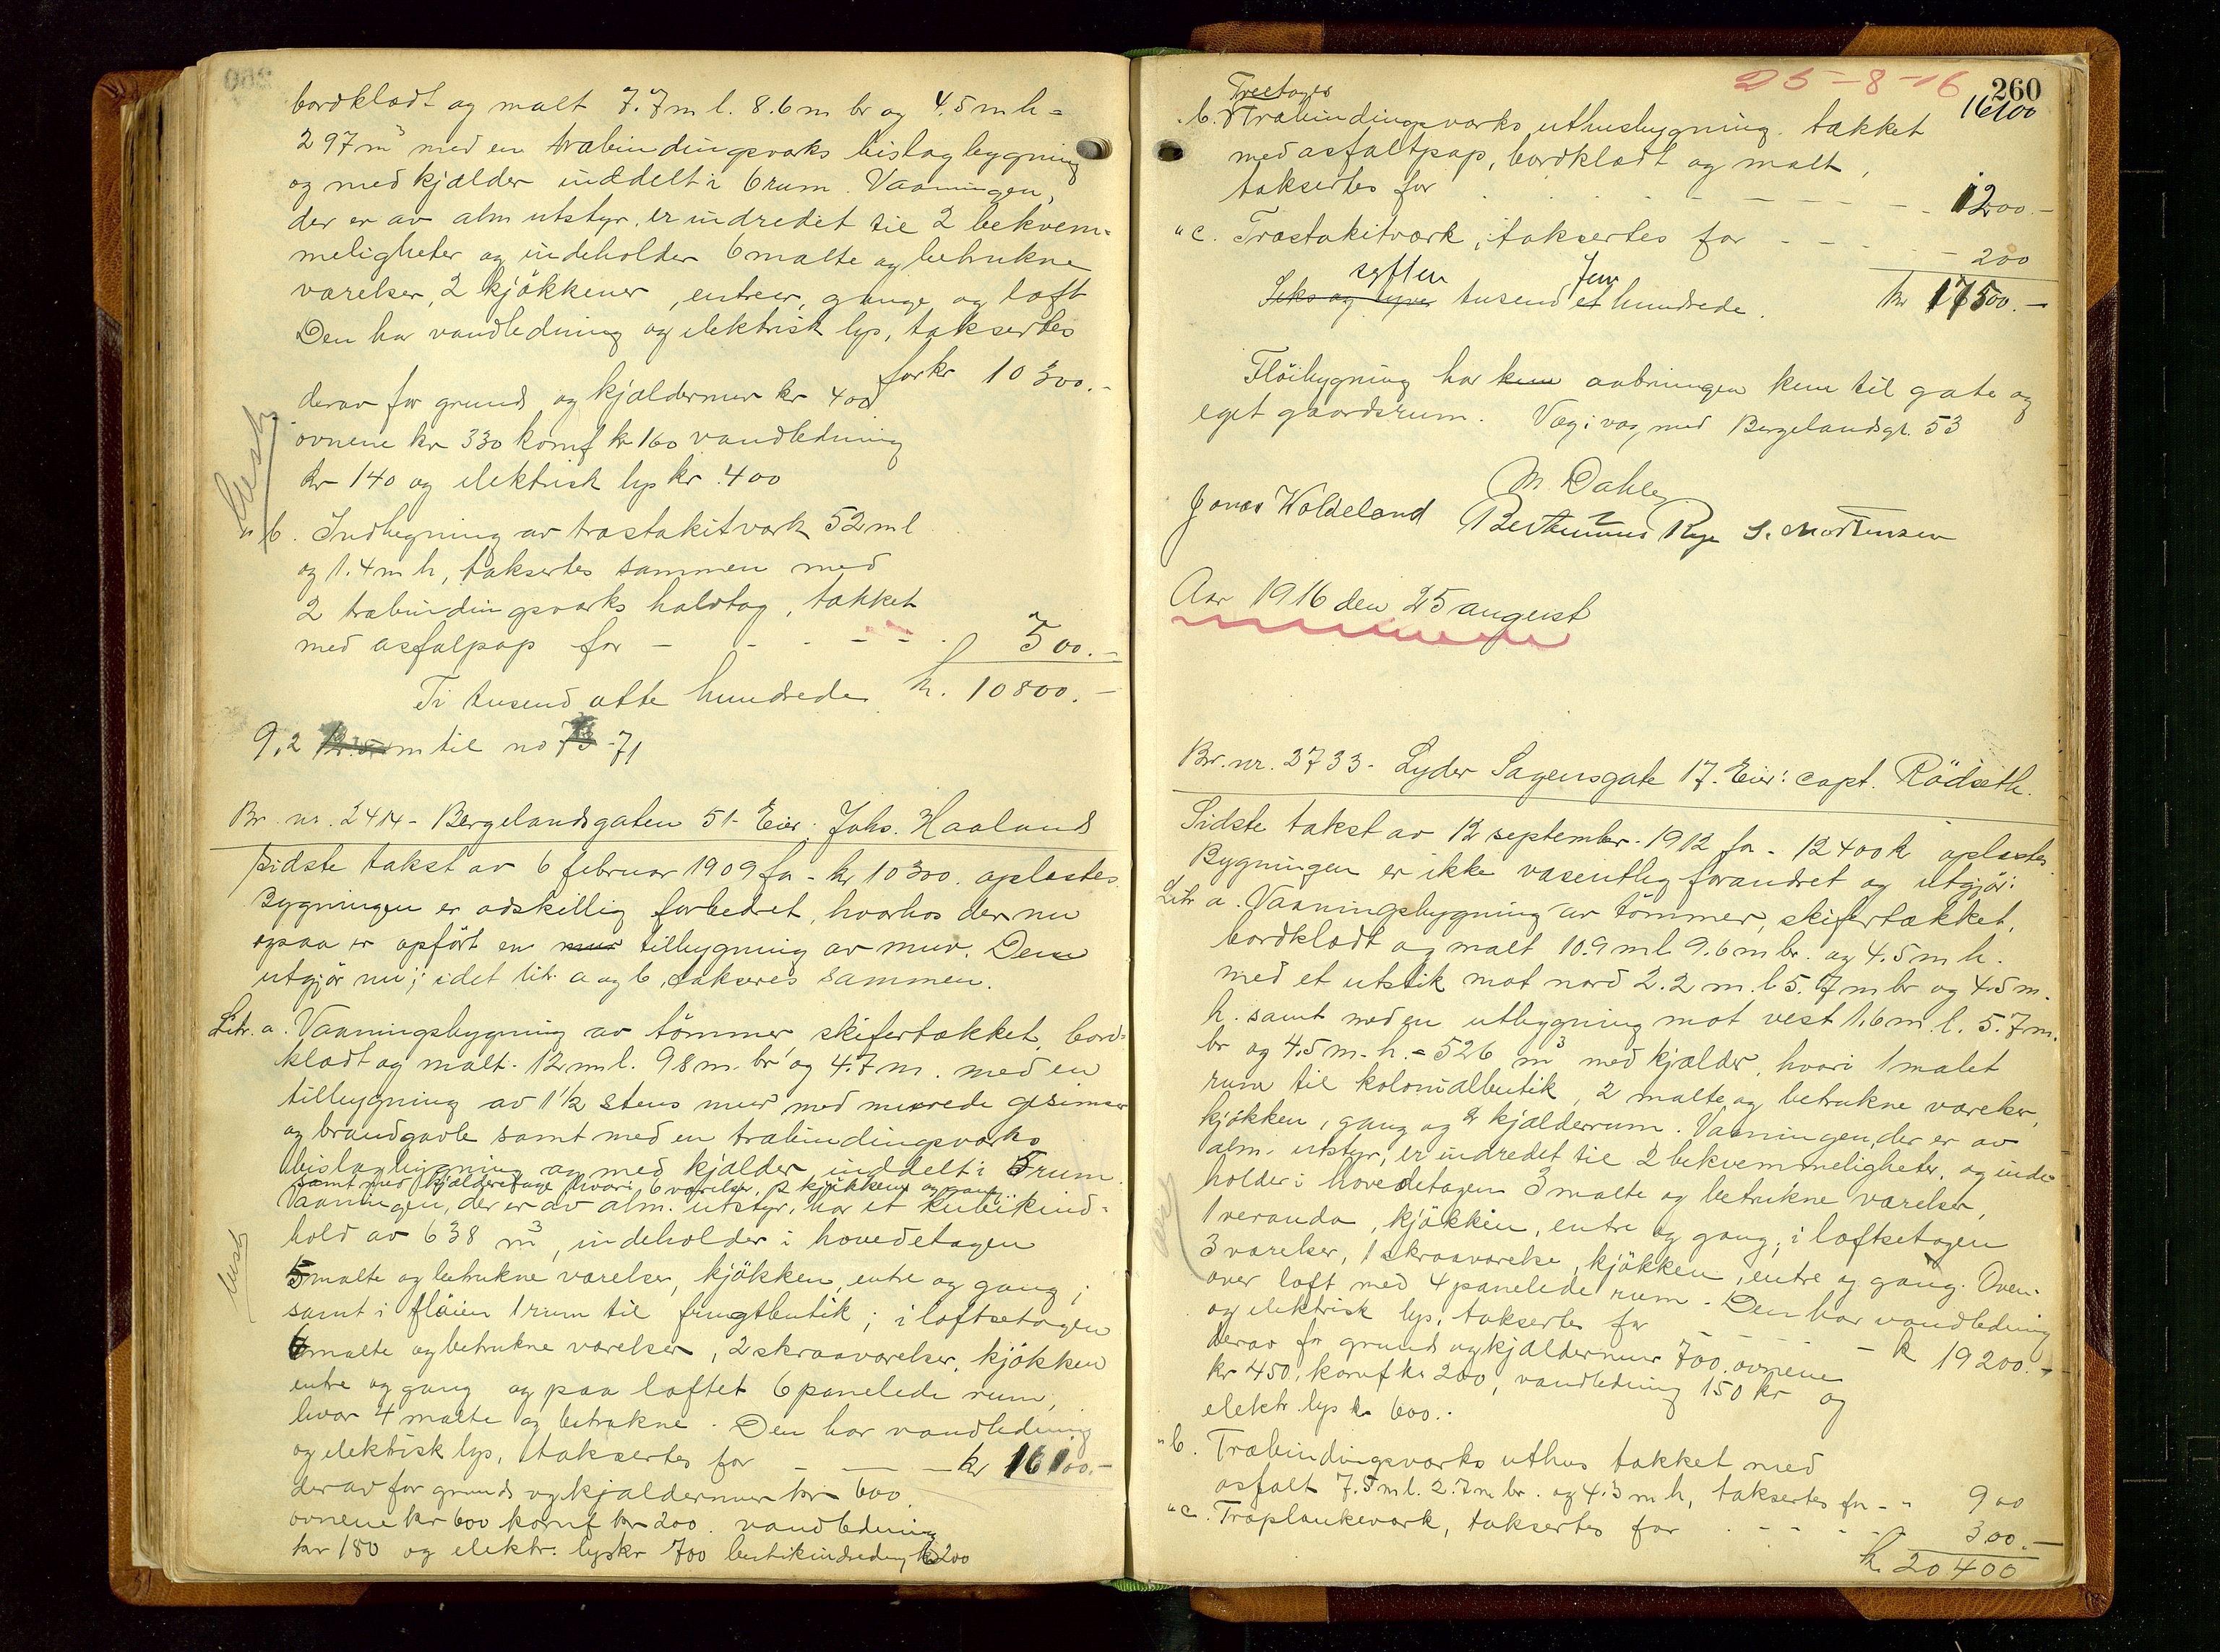 bordklædt og malt 7.7 m l. 8.6 m br og 4.5 m h =
297 m³ med en træbindingsværks bislagbygning
og med kjælder inddelt i 6 rum. Vaaningen,
der er av alm utstyr, er indredet til 2 bekvem-
meligheter og indeholder 6 malte og betrukne
værelser, 2 kjøkkener, entreer, gange og loft
Den har vandledning og elektrisk lys, taksertes
for kr 10300.-
derav for grund og kjældermur kr 400
ovnene kr 330 komf kr 160 vandledning
kr 140 og elektrisk lys kr. 400
" b. Indhegning av træstakitværk 52 m l
og 1.4 m h, taksertes sammen med
2 træbindingsværks halvtag, tækket
med asfalpap for - - - - - 500.-
Ti tusend otte hundrede kr. 10800.-
9,2 m til no 71
Br. nr. 2414 - Bergelandsgaten 51 - Eier: Johs. Haaland
Sidste takst av 6 februar 1909 for - kr 10300. oplæstes.
Bygningen er adskillig forbedret, hvorhos der nu
ogsaa er opført en mur tilbygning av mur. Den
utgjør nu; idet litr. a og b, takseres sammen.
Litr. a. Vaaningsbygning av tømmer, skifertækket, bord-
klædt og malt. 12 m l. 9.8 m. br og 4.7 m. med en
tilbygning av 1½ stens mur med murede gesimser
og brandgavle samt med en træbindingsværks
bislagbygning og med kjælder inddelt i 5 rum
samt med kjælderetage hvori 6 værelser, 2 kjøkkener og gang
Vaaningen, der er av alm. utstyr, har et kubikind-
hold av 638 m³, indeholder i hovedetagen
5 malte og betrukne værelser, kjøkken, entre og gang;
samt i fløien 1 rum til frugtbutik; i loftsetagen
6 malte og betrukne værelser, 2 skraaværelser, kjøkken
entre og gang og paa loftet 6 panelede rum,
hvor 4 malte og betrukne. Den har vandledning
og elektrisk lys, taksertes for - - - kr 16100.-
derav for grund og kjældermur kr 600.
ovnene kr 600 komf kr 200. vandledning
kr 180 og elektr. lys kr 700 butikindredning kr 200
25-8-16
260
16100
Treetages
" b. Træbindingsværks uthusbygning. tækket
med asfaltpap, bordklædt og malt,
taksertes for - - - - - 1200.-
" c. Træstakitværk, taksertes for - - - - 200
sytten fem
Seks og tyve tusend et hundrede. kr 17500.-
Fløibygning har kun aabningen kun til gate og
eget gaardsrum. Væg i væg med Bergelandsgt. 53
M. Dahle
Jonas Holdeland Berthinius Rege S. Mortensen
Aar 1916 den 25 august
Br. nr. 2733 - Lyder Sagensgate 17. Eier: capt. Rødseth.
Sidste takst av 12 september 1912 for - 12400 kr oplæstes.
Bygningen er ikke væsentlig forandret og utgjør:
Litr a. Vaaningsbygning av tømmer, skifertækket,
bordklædt og malt 10.9 m l. 9.6 m br. og 4.5 m h.
med et utstik mot nord 2.2 m. l 5.7 m br og 4.5 m.
h. samt med en utbygning mot vest 1.6 m. l. 5.7 m.
br og 4.5 m. h. = 526 m³ med kjælder, hvori 1 malet
rum til kolonialbutik, 2 malte og betrukne værelser,
kjøkken, gang og 2 kjælderrum. Vaaningen, der er av
alm. utstyr, er indredet til 2 bekvemmeligheter, og inde-
holder i hovedetagen 3 malte og betrukne værelser,
1 veranda, kjøkken, entre og gang; i loftsetagen
3 værelser, 1 skraaværelse, kjøkken, entre og gang. Oven-
over loft med 4 panelede rum. Den har vandledning
og elektrisk lys, taksertes for - - - - - kr 19200.-
derav for grund og kjældermur 700. ovnene
kr 450, komf kr 200, vandledning 150 kr og
elektr. lys kr 600.-
" b. Træbindingsværks uthus tækket med
asfalt 7.5 m l. 2.7 m br. og 4.3 m h, taksertes for - " 900
" c. Træplankeværk, taksertes for - - - - 300.-
kr. 20400